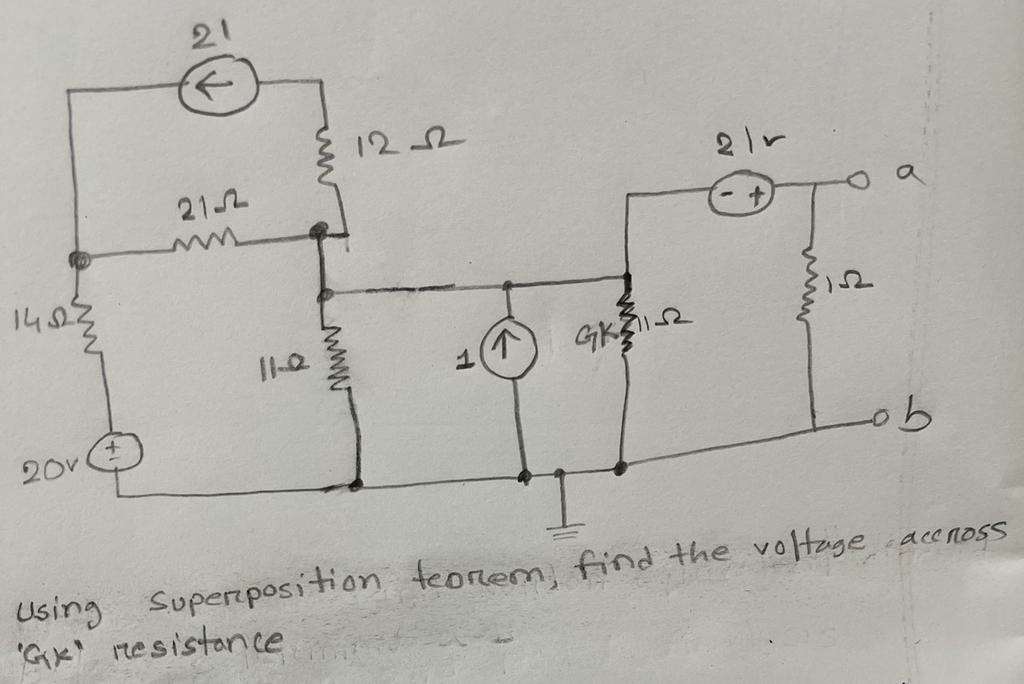 21
12 Ω
21v
- +
a
21Ω
14Ω
11Ω
1
GK
11Ω
1Ω
20v
+
-
b
Using superposition teorem, find the voltage accross
'GK' resistance